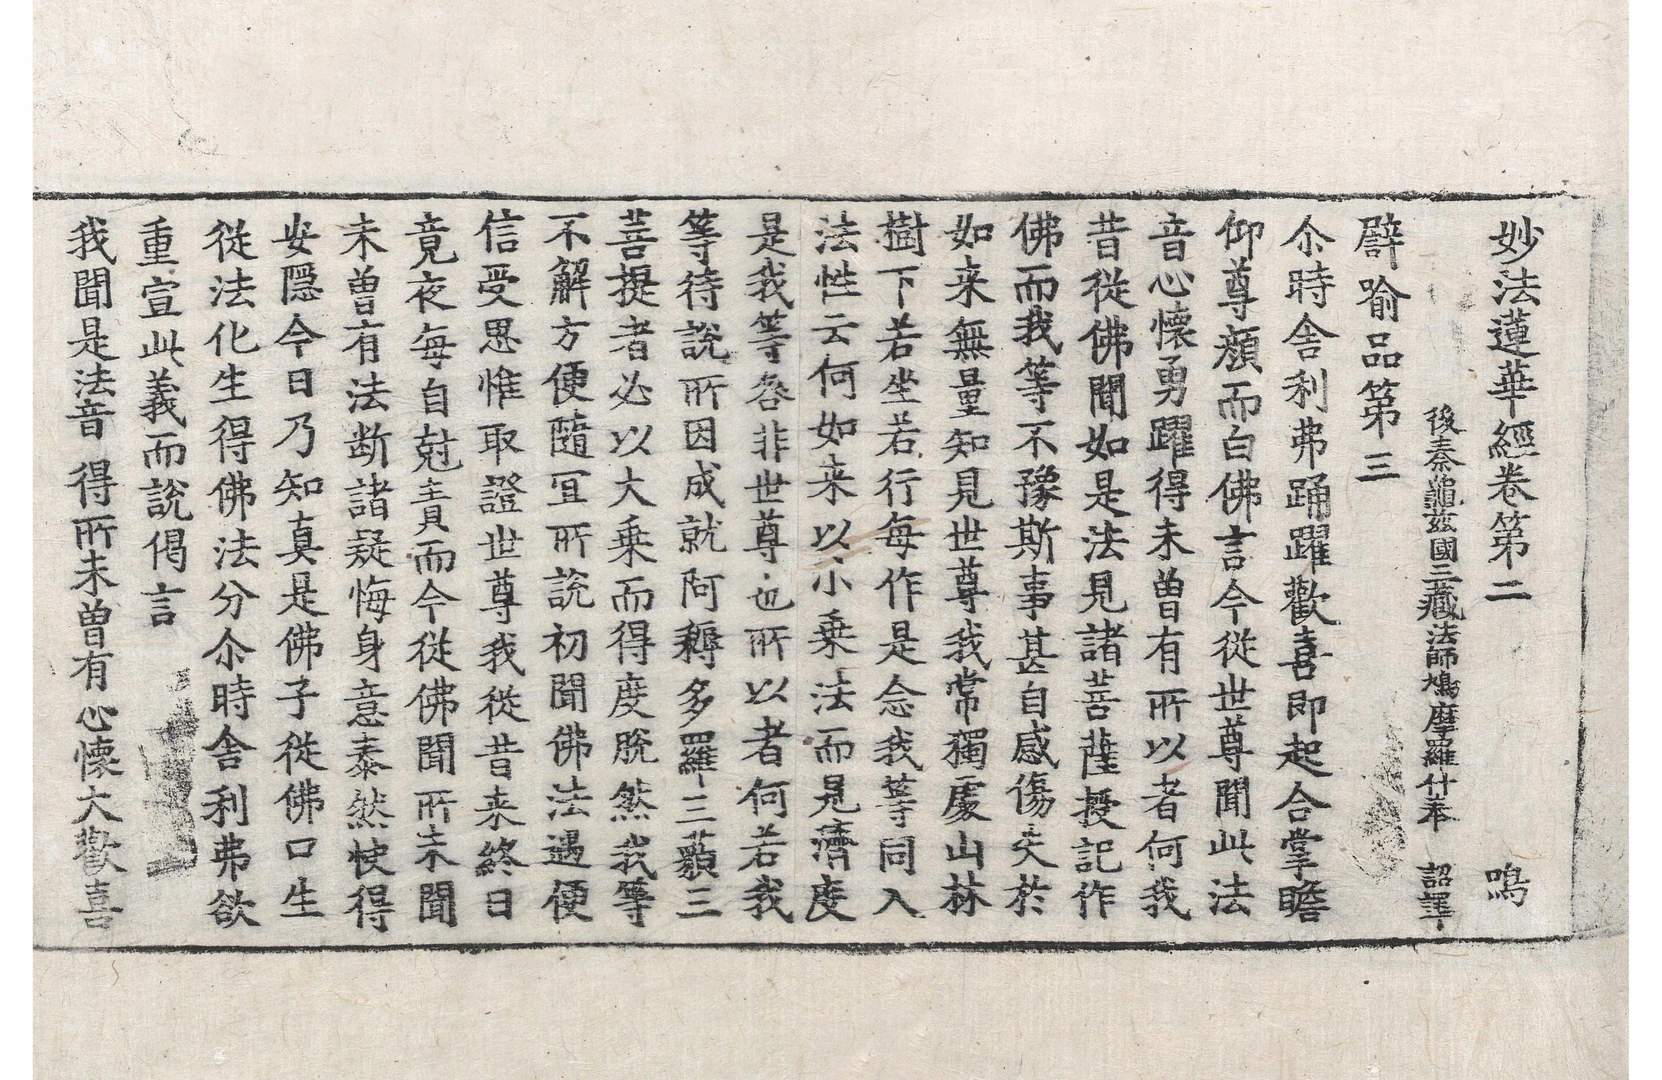 妙法蓮華經卷第二 鳴
後秦龜茲國三藏法師鳩摩羅什奉 詔譯
譬喻品第三
尒時舍利弗踊躍歡喜即起合掌瞻
仰尊顏而白佛言今從世尊聞此法
音心懷勇躍得未曾有所以者何我
昔從佛聞如是法見諸菩薩授記作
佛而我等不豫斯事甚自感傷失於
如来無量知見世尊我常獨處山林
樹下若坐若行每作是念我等同入
法性云何如来以小乗法而見濟度
是我等咎非世尊也所以者何若我
等待說所因成就阿耨多羅三藐三
菩提者必以大乗而得度脫然我等
不解方便隨冝所說初聞佛法遇便
信受思惟取證世尊我從昔来終日
竟夜每自尅責而今從佛聞所未聞
未曾有法断諸疑悔身意泰然快得
安隱今日乃知真是佛子從佛口生
從法化生得佛法分尒時舍利弗欲
重宣此義而說偈言
我聞是法音 得所未曾有 心懷大歡喜